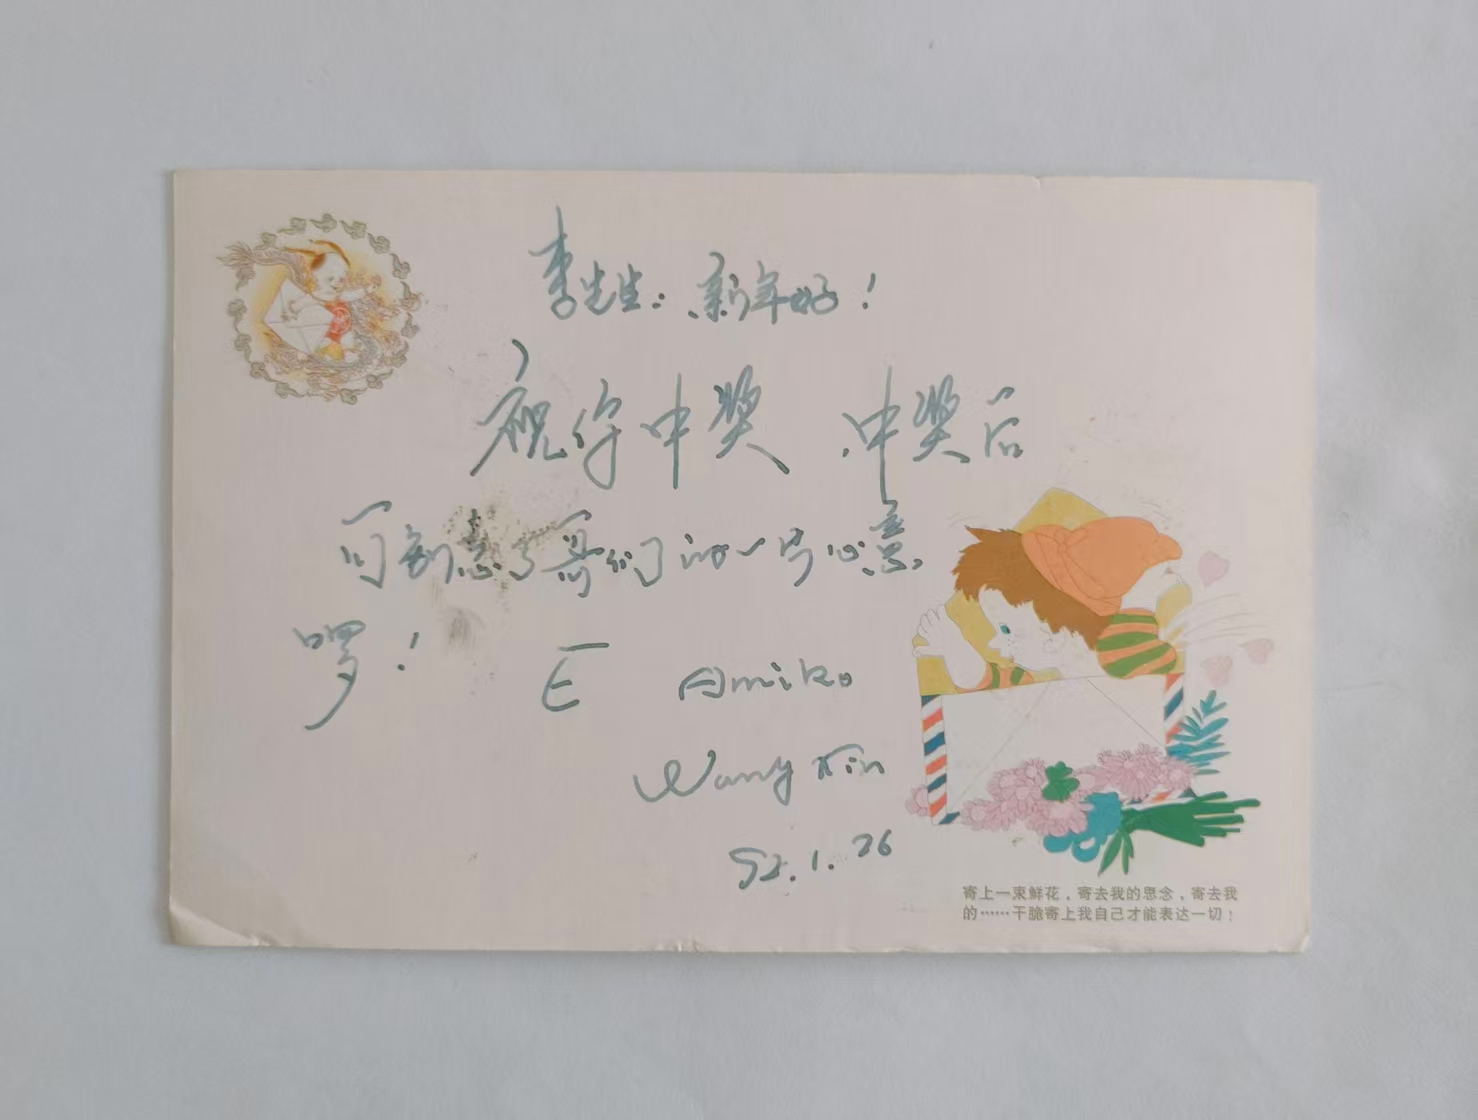 李先生：新年好！
祝你中奖 中奖后
可别忘了哥们的一片心意
啰！
E Amiko
Wang Xin
92.1.26
寄上一束鲜花，寄去我的思念，寄去我
的……干脆寄上我自己才能表达一切！